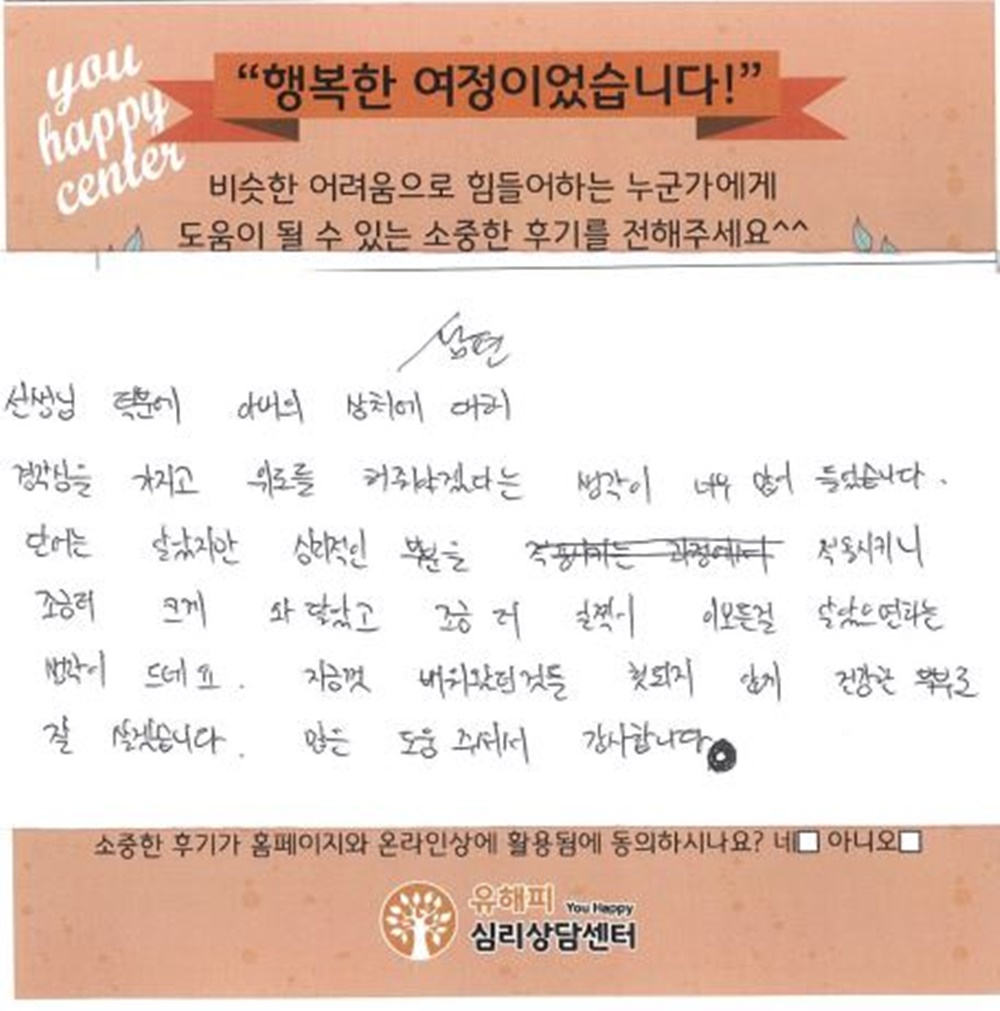 you
happy
center
“행복한 여정이었습니다!”
비슷한 어려움으로 힘들어하는 누군가에게
도움이 될 수 있는 소중한 후기를 전해주세요^^
남편
선생님 덕분에 아내의 상처에 대해
경각심을 가지고 위로를 해줘야겠다는 생각이 너무 많이 들었습니다.
단어는 알았지만 심리적인 부분을 적용시키는 과정에서 적용시키니
조금더 크게 와 닿았고 조금 더 일찍이 이모든걸 알았으면하는
생각이 드네요. 지금껏 배워왔던것들 헛되지 않게 건강한 부부로
잘 살겠습니다. 많은 도움 주셔서 감사합니다
소중한 후기가 홈페이지와 온라인상에 활용됨에 동의하시나요? 네□ 아니오□
유해피 You Happy
심리상담센터